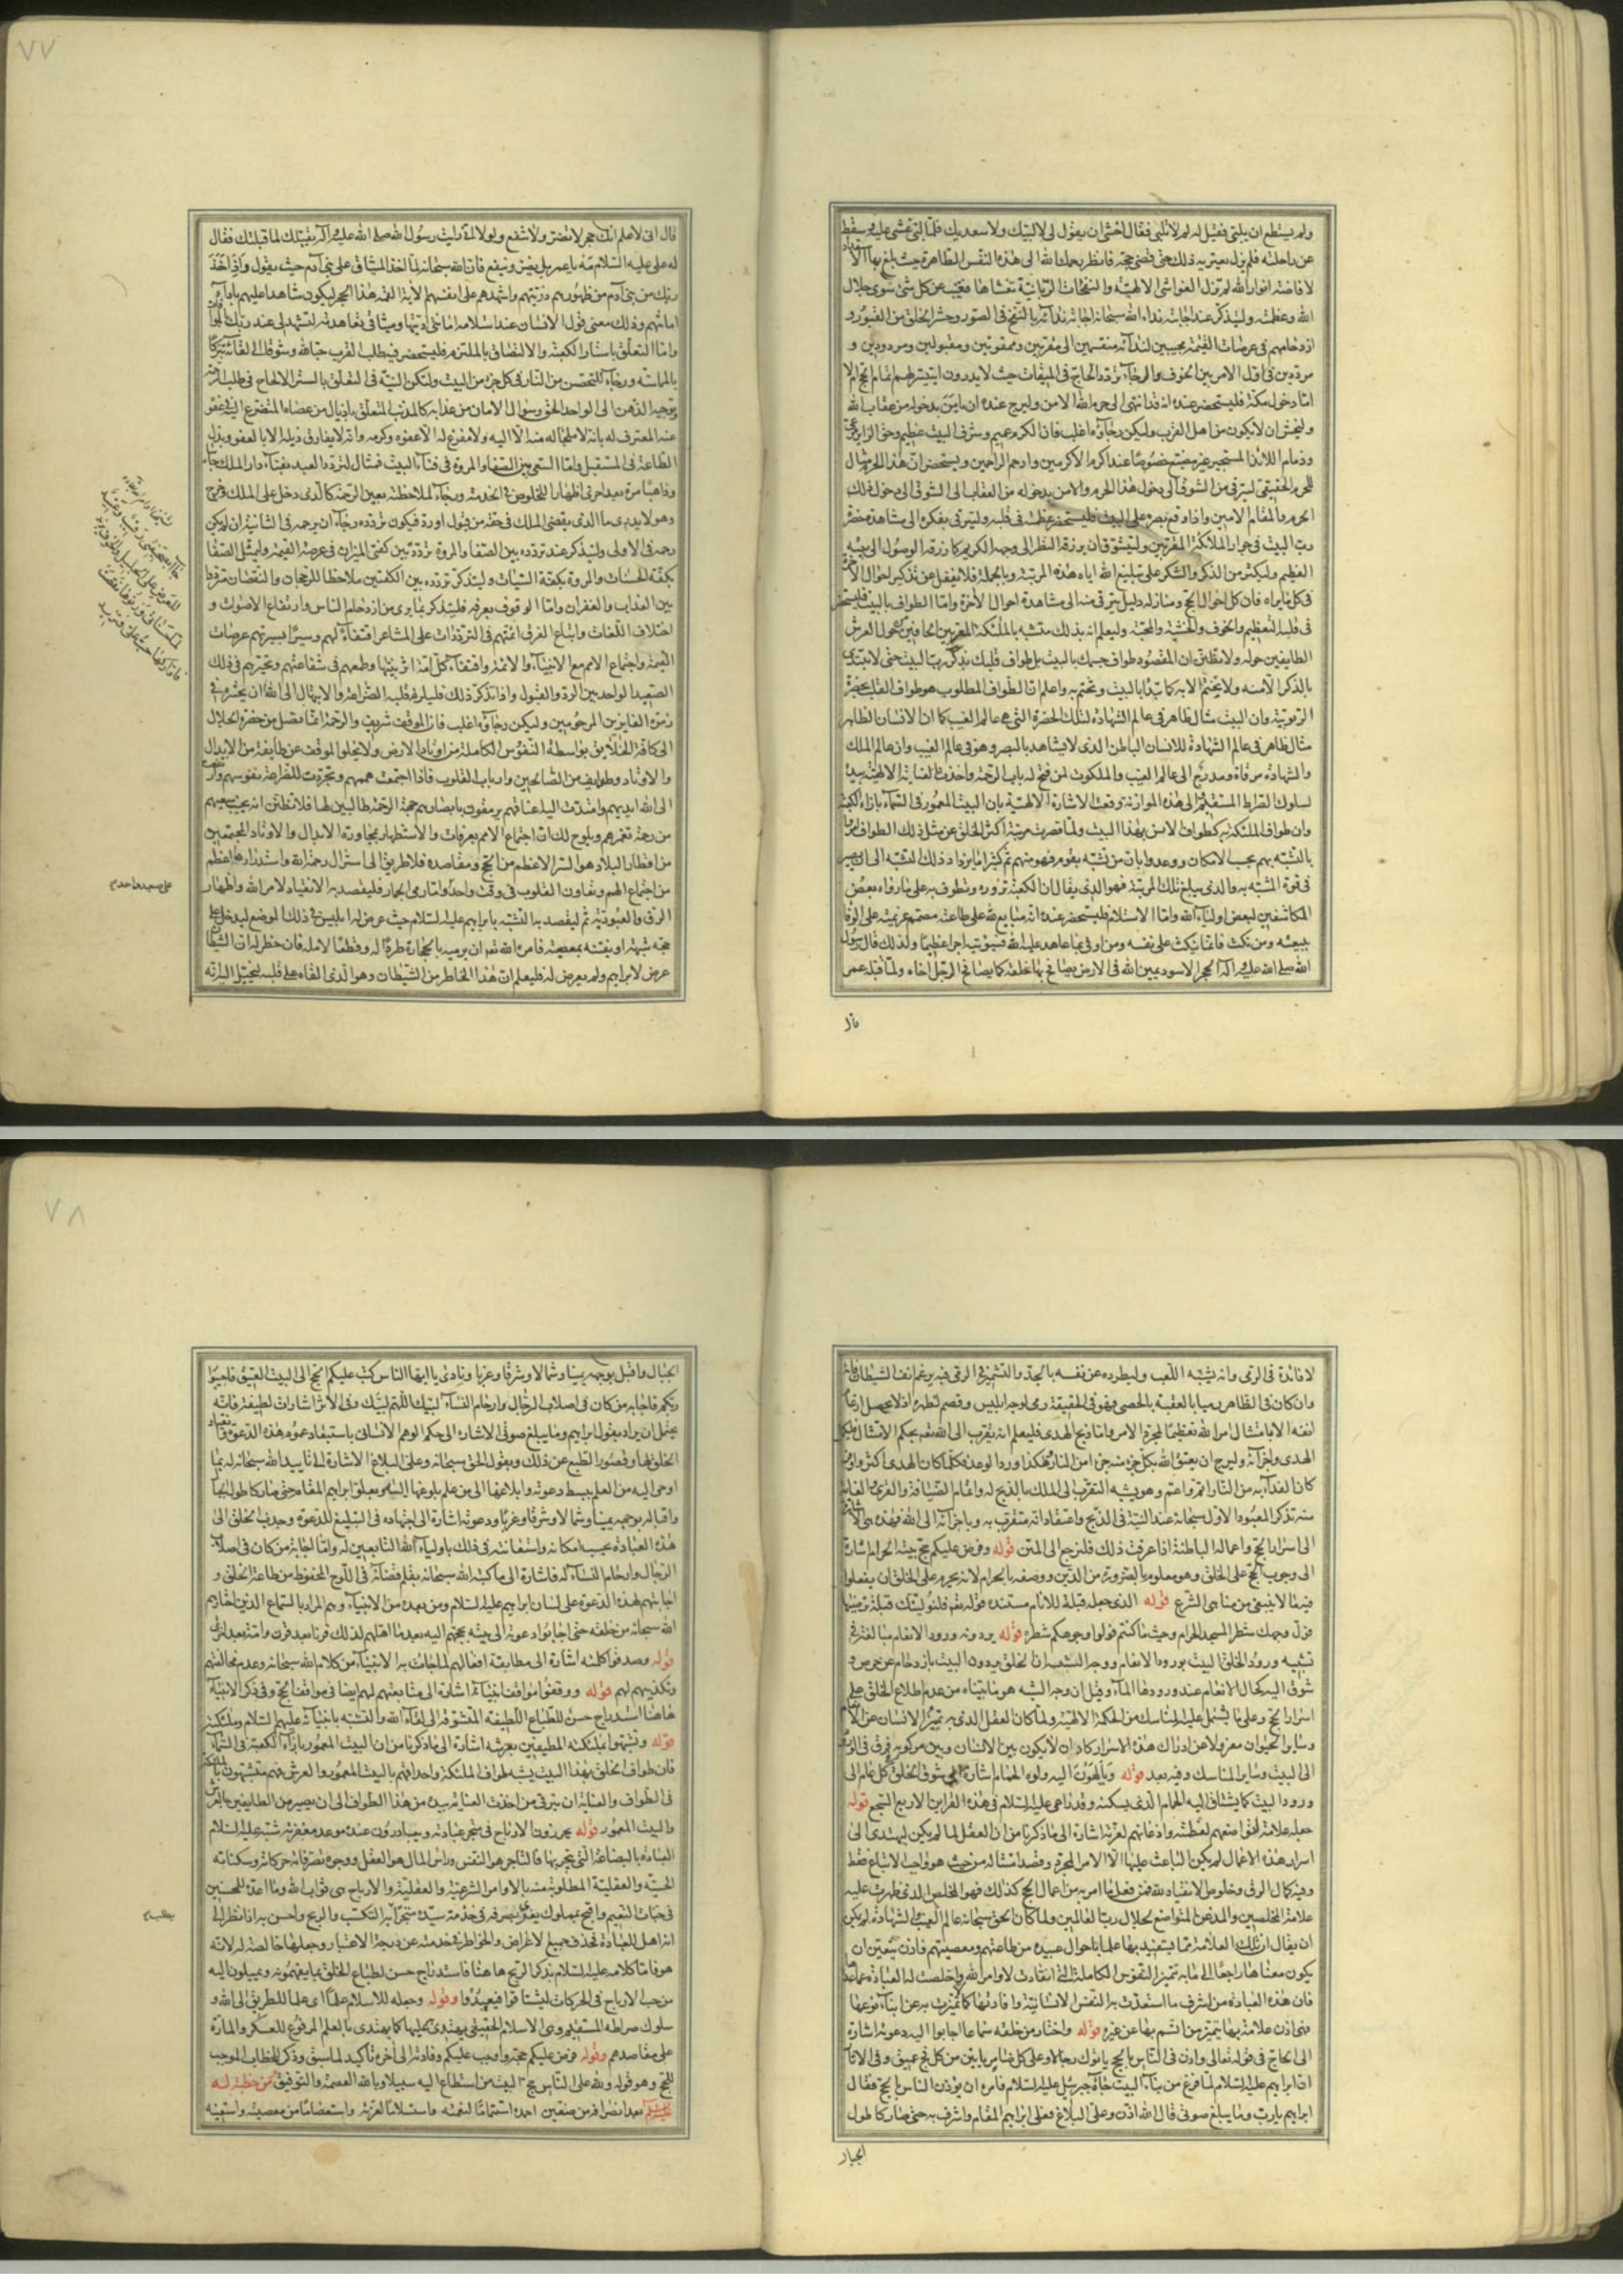 ولم يستطع ان يلبى فقيل له لم لا تلبى فقال اخشى ان يقول لى لا لبيك ولا سعديك فلما لبى غشى عليه وسقط
عن راحلته فلم يزل يعتريه ذلك حتى قضى حجه فانظر رحمك الله الى هذه النفس الطاهرة حيث بلغ بها
لافاضة انوار الله لم تزل الغواشى الالهية والنفحات الربانية تغشاها فيغيب عن كل شئ سوى جلال
الله وعظمته وليتذكر عند اجابته نداء الله سبحانه اجابة ندائه بالنفخ فى الصور وحشر الخلق من القبور و
ازدحامهم فى عرصات القيمة مجيبين لندائه منقسمين الى مقربين وممقوتين ومقبولين ومردودين و
مرددين فى اول الامر بين الخوف والرجاء تردد الحاج فى الميقات حيث لا يدرون ايتيسر لهم تمام الحج ام لا
اما دخول مكة فليستحضر عنده انه قد انتهى الى حرم الله الامن وليرج عنده ان يامن بدخوله من عقاب الله
وليخش ان لا يكون من اهل القرب وليكن رجاؤه اغلب فان الكرم عميم وشرف البيت عظيم وحق الزاير مرعى
وذمام اللائذ المستجير غير مضيع خصوصا عند اكرم الاكرمين وارحم الراحمين ويستحضر ان هذا الحرم مثال
للحرم الحقيقى ليترقى من الشوق الى دخول هذا الحرم والامن بدخوله من العقاب الى الشوق الى دخول ذلك
الحرم والمقام الامين واذا وقع بصره على البيت فليستحضر عظمته فى قلبه وليترق بفكره الى مشاهدة حضرة
رب البيت فى جوار الملائكة المقربين وليتشوق ان يرزقه النظر الى وجهه الكريم كما رزقه الوصول الى بيته
العظيم وليكثر من الذكر والشكر على تبليغ الله اياه هذه المرتبة وبالجملة فلا يغفل عن تذكير احوال الاخرة
فى كل ما يراه فان كل احوال الحج ومنازله دليل يترقى منه الى مشاهدة احوال الاخرة واما الطواف بالبيت فليستحضر
فى قلبه التعظيم والخوف والخشية والمحبة وليعلم انه بذلك متشبه بالملئكة المقربين الحافين حول العرش
الطايفين حوله ولا تظنن ان المقصود طواف جسمك بالبيت بل طواف قلبك بذكر رب البيت حتى لا يبتدى
بالذكر الا منه ولا يختم الا به كما تبدأ بالبيت وتختم به واعلم ان الطواف المطلوب هو طواف القلب بحضرة
الربوبية وان البيت مثال ظاهر فى عالم الشهادة لتلك الحضرة التى هى عالم الغيب كما ان الانسان الظاهر
مثال ظاهر فى عالم الشهادة للانسان الباطن الذى لا يشاهد بالبصر وهو فى عالم الغيب وان عالم الملك
والشهادة مرقاة ومدرج الى عالم الغيب والملكوت لمن فتح له باب الرحمة واخذت العناية الالهية بيده
لسلوك الصراط المستقيم والى هذه الموازنة وقعت الاشارة الالهية بان البيت المعمور فى السماء بازاء الكعبة
وان طواف الملئكة به كطواف الانس بهذا البيت ولما قصرت مرتبة اكثر الخلق عن مثل ذلك الطواف امروا
بالتشبه بهم بحسب الامكان ووعدوا بان من تشبه بقوم فهو منهم ثم كثيرا ما يزداد ذلك التشبه الى ان يصير
فى قوة المشبه به والذى يبلغ تلك المرتبة فهو الذى يقال ان الكعبة تزوره وتطوف به على ما رواه بعض
المكاشفين لبعض اولياء الله واما الاستلام فليستحضر عنده انه مبايع لله على طاعته مصمم عزيمته على الوفا
ببيعته ومن نكث فانما ينكث على نفسه ومن اوفى بما عاهد عليه الله فسيؤتيه اجرا عظيما ولذلك قال رسول
الله صلى الله عليه واله الحجر الاسود يمين الله فى الارض يصافح بها خلقه كما يصافح الرجل اخاه ولما قبله عمر
قال
٧٧
قال انى لاعلم انك حجر لا تضر ولا تنفع ولولا انى رايت رسول الله صلى الله عليه واله يقبلك لما قبلتك فقال
له على عليه السلام مه يا عمر بل يضر وينفع فان الله سبحانه لما اخذ الميثاق على بنى ادم حيث يقول واذ اخذ
ربك من بنى آدم من ظهورهم ذريتهم واشهدهم على انفسهم الاية القمه هذا الحجر ليكون شاهدا عليهم باداء
امانتهم وذلك معنى قول الانسان عند استلامه امانتى اديتها وميثاقى تعاهدته لتشهد لى عند ربك بالموافاة
واما التعلق باستار الكعبة والالتصاق بالملتزم فليستحضر فيه طلب القرب حبا لله وشوقا الى لقائه تبركا
بالماسة ورجاء للتحصن من النار فى كل جزء من البيت ولتكن النية فى التعلق بالستر الالحاح فى طلب الرحمة
وتوجيه الذهن الى الواحد الحق وسؤال الامان من عذابه كالمذنب المتعلق باذيال من عصاه المتضرع اليه فى عفوه
عنه المعترف له بانه لا ملجأ له منه الا اليه ولا مفزع له الا عفوه وكرمه وانه لا يفارق ذيله الا بالعفو وبذل
الطاعة فى المستقبل واما السعى بين الصفا والمروة فى فناء البيت فمثال لتردد العبد بفناء دار الملك جائيا
وذاهبا مرة بعد اخرى اظهارا للخلوص فى الخدمة ورجاء لملاحظته بعين الرحمة كالذى دخل على الملك وخرج
وهو لا يدرى ما الذى يقضى الملك فى حقه من قبول او رد فيكون تردده رجاء ان يرحمه فى الثانية ان لم يكن
رحمه فى الاولى وليتذكر عند تردده بين الصفا والمروة تردده بين كفتى الميزان فى عرصة القيمة وليمثل الصفا
بكفة الحسنات والمروة بكفة السيئات وليتذكر تردده بين الكفتين ملاحظا للرجحان والنقصان مترددا
بين العذاب والغفران واما الوقوف بعرفة فليتذكر بما يرى من ازدحام الناس وارتفاع الاصوات و
اختلاف اللغات واتباع الفرق ائمتهم فى الترددات على المشاعر اقتفاء لهم وسيرا بسيرتهم عرصات
القيمة واجتماع الامم مع الانبياء والائمة واقتفاء كل امة اثر نبيها وطمعهم فى شفاعتهم وتحيرهم فى ذلك
الصعيد الواحد بين الرد والقبول واذا تذكر ذلك فليلزم قلبه الضراعة والابتهال الى الله ان يحشره فى
زمرة الفايزين المرحومين وليكن رجاؤه اغلب فان الموقف شريف والرحمة انما تصل من حضرة الجلال
الى كافة الخلايق بواسطة النفوس الكاملة من اوتاد الارض ولا يخلوا الموقف عن طايفة من الابدال
والاوتاد وطوايف من الصالحين وارباب القلوب فاذا اجتمعت هممهم وتجردت للضراعة نفوسهم وارتفعت
الى الله ايديهم وامتدت اليه اعناقهم يرمقون بابصارهم جهة الرحمة طالبين لها فلا تظنن انه يخيب سعيهم
من رحمة تغمرهم ويلوح لك ان اجتماع الامم بعرفات والاستظهار بمجاورة الابدال والاوتاد المجتمعين
من اقطار البلاد هو السر الاعظم من الحج ومقاصده فلا طريق الى استنزال رحمة الله واستدرارها اعظم
من اجتماع الهمم وتعاون القلوب فى وقت واحد واما رمى الجمار فليقصد به الانقياد لامر الله واظهار
الرق والعبودية ثم ليقصد به التشبه بابراهيم عليه السلام حيث عرض له ابليس فى ذلك الموضع ليدخل على
حجه شبهة او يفتنه بمعصية فامره الله تعالى ان يرميه بالحجارة طردا له وقطعا لامله فان خطر له ان الشيطان
عرض لابراهيم ولم يعرض له فليعلم ان هذا الخاطر من الشيطان وهو الذى القاه على قلبه ليخيل اليه انه
على صعيد واحد
لا فائدة فى الرمى وانه يشبه اللعب وليطرده عن نفسه بالجد والتشمير فى الرمى فيه يرغم انف الشيطان فانه
وان كان فى الظاهر رميا بالعقبة بالحصى فهو فى الحقيقة رمى لوجه ابليس وقصم لظهره اذ لا يحصل ارغام
انفه الا بامتثال امر الله تعظيما لمجرد الامر واما ذبح الهدى فليعلم انه تقرب الى الله تعالى بحكم الامتثال فليكمل
الهدى واجزائه وليرج ان يعتق الله بكل جزء منه جزءا من النار هكذا ورد الوعد فكلما كان الهدى اكثر واوفر
كان الفداء به من النار اتم واعم وهو يشبه التقرب الى الملك بالذبح له واتمام الضيافة والقرى والغاية
منه تذكر المعبود الاول سبحانه عند النية فى الذبح واعتقاد انه متقرب به وباجزائه الى الله فهذه هى الاشارة
الى اسرار الحج واعماله الباطنة اذا عرفت ذلك فلنرجع الى المتن قوله وفرض عليكم حج بيته الحرام اشارة
الى وجوب الحج على الخلق وهو معلوم بالضرورة من الدين ووصفه بالحرام لانه يحرم على الخلق ان يفعلوا
فيه ما لا ينبغى من مناهى الشرع قوله الذى جعله قبلة للانام مستنده قوله تعالى فلنولينك قبلة ترضيها
فول وجهك شطر المسجد الحرام وحيث ما كنتم فولوا وجوهكم شطره قوله يردونه ورود الانعام مبالغة فى
تشبيه ورود الخلق البيت بورود الانعام ووجه الشبه ان الخلق يردون البيت بازدحام عن حرص و
شوق اليه كحال الانعام عند ورودها الماء وقيل ان وجه الشبه هو ما بيناه من عدم اطلاع الخلق على
اسرار الحج وعلى ما يشتمل عليه المناسك من الحكمة الالهية ولما كان العقل الذى به تميز الانسان عن الانعام
وساير الحيوان معزولا عن ادراك هذه الاسرار كاد ان لا يكون بين الانسان وبين مركوبه فرق فى الورود
الى البيت وساير المناسك وفيه بعد قوله ويألهون اليه ولوه الحمام اشارة الى شوق الخلق كل عام الى
ورود البيت كما يشتاق اليه الحمام الذى يسكنه وقد راعى عليه السلام فى هذه القراين الاربع السجع قوله
جعله علامة لتواضعهم لعظمته واذعانهم لعزته اشارة الى ما ذكرنا من ان العقل لما لم يكن ليهتدى الى
اسرار هذه الاعمال لم يكن الباعث عليها الا الامر المجرد وقصد امتثاله من حيث هو واجب الاتباع فقط
وفيه كمال الرق وخلوص الانقياد لله فمن فعل ما امر به من اعمال الحج كذلك فهو المخلص الذى ظهرت عليه
علامة المخلصين والمذعن المتواضع لجلال رب العالمين ولما كان الحق سبحانه عالم الغيب والشهادة لم يكن
ان يقال ان تلك العلامة مما يستفيد بها علما باحوال عبيده من طاعتهم ومعصيتهم فاذن يتعين ان
يكون معناها راجعا الى ما به تميز النفوس الكاملة التى انقادت لاوامر الله واخلصت له العبادة عما عداها
فان هذه العبادة من اشرف ما استعدت به النفس الانسانية وافادتها كمالا تميزت به عن ابناء نوعها
فهى اذن علامة بها يتميز من اتسم بها عن غيره قوله واختار من خلقه سماعا اجابوا اليه دعوته اشارة
الى الحاج فى قوله تعالى واذن فى الناس بالحج ياتوك رجالا وعلى كل ضامر ياتين من كل فج عميق وفى الاثار
ان ابراهيم عليه السلام لما فرغ من بناء البيت جاءه جبرئيل عليه السلام فامره ان يؤذن الناس بالحج فقال
ابراهيم يا رب وما يبلغ صوتى قال الله اذن وعلى البلاغ فعلى ابراهيم المقام واشرف به حتى صار كاطول
الجبال
٧٨
الجبال واقبل بوجهه يمينا وشمالا وشرقا وغربا ونادى يا ايها الناس كتب عليكم الحج الى البيت العتيق فاجيبوا
ربكم فاجابه من كان فى اصلاب الرجال وارحام النساء لبيك اللهم لبيك وفى الاثر اشارات لطيفة فانه
يحتمل ان يراد بقول ابراهيم وما يبلغ صوتى الاشارة الى حكم الوهم الانسانى باستبعاد عموم هذه الدعوة وانقياد
الخلق لها وقصور الطبع عن ذلك وبقول الحق سبحانه وعلى البلاغ الاشارة الى تاييد الله سبحانه له بما
اوحى اليه من العلم ببسط دعوته وابلاغها الى من علم بلوغها اليه وبعلو ابراهيم المقام حتى صار كاطول الجبال
واقباله بوجهه يمينا وشمالا وشرقا وغربا ودعوته اشارة الى اجتهاده فى التبليغ للدعوة وجذب الخلق الى
هذه العبادة بحسب امكانه واستعانته فى ذلك باولياء الله التابعين له واما اجابة من كان فى اصلاب
الرجال وارحام النساء له فاشارة الى ما كتبه الله سبحانه بقلم قضائه فى اللوح المحفوظ من طاعة الخلق و
اجابتهم لهذه الدعوة على لسان ابراهيم عليه السلام ومن بعده من الانبياء وهم المراد بالسماع الذين اختارهم
الله سبحانه من خلقه حتى اجابوا دعوته الى بيته بحجهم اليه بعد ما اهلهم لذلك قرنا بعد قرن وامة بعد اخرى
قوله وصدقوا كلمته اشارة الى مطابقة افعالهم لما جاءت به الانبياء من كلام الله سبحانه وعدم مخالفتهم
وتكذيبهم لهم قوله ووقفوا مواقف انبيائه اشارة الى متابعتهم لهم ايضا فى مواقف الحج وفى ذكر الانبياء
هاهنا استدراج حسن للطباع اللطيفة المتشوقة الى لقاء الله والتشبه بانبيائه عليهم السلام وملئكته
قوله وتشبهوا بملئكته المطيفين بعرشه اشارة الى ما ذكرنا من ان البيت المعمور بازاء الكعبة فى السماء
فان طواف الخلق بهذا البيت يشبه طواف الملئكة واحداقهم بالبيت المعمور والعرش فهم متشبهون بالملئكة
فى الطواف والغاية ان يترقى من اخذت العناية بيده من هذا الطواف الى ان يصير من الطايفين بالعرش
والبيت المعمور قوله يحرزون الارباح فى متجر عبادته ويتبادرون عنده موعد مغفرته شبه عليه السلام
العبادة بالبضاعة التى يتجر بها فالتاجر هو النفس وراس المال هو العقل ووجوه تصرفاته حركاته وسكناته
الحسية والعقلية المطلوبة منه بالاوامر الشرعية والعقلية والارباح هى ثواب الله وما اعده للمحسنين
فى جنات النعيم واقبح بمملوك يعد تصرفه فى خدمة سيده متجرا به التكسب والربح واحسن به اذا نظر الى
انه اهل للعبادة فحذف جميع الاغراض والخواطر فى خدمته عن درجة الاعتبار وجعلها خالصة له لانه
هو فاما كلامه عليه السلام بذكر الربح هاهنا فاستدراج حسن لطباع الخلق بما يفهمونه ويميلون اليه
من حب الارباح فى الحركات ليشتاقوا فيعبدوا وقوله وجعله للاسلام علما اى علما للطريق الى الله و
سلوك صراطه المستقيم وهى الاسلام الحقيقى يهتدى به عليها كما يهتدى بالعلم المرفوع للعسكر والمارة
على مقاصدهم وقوله فرض عليكم حجه واوجب عليكم وفادته الى اخره تاكيد لما سبق وذكر للخطاب الموجب
للحج وهو قوله ولله على الناس حج البيت من استطاع اليه سبيلا وبالله العصمة والتوفيق ومن خطبة له
عليه السلام بعد انصرافه من صفين احمده استتماما لنعمته واستسلاما لعزته واستعصاما من معصيته واستعينه